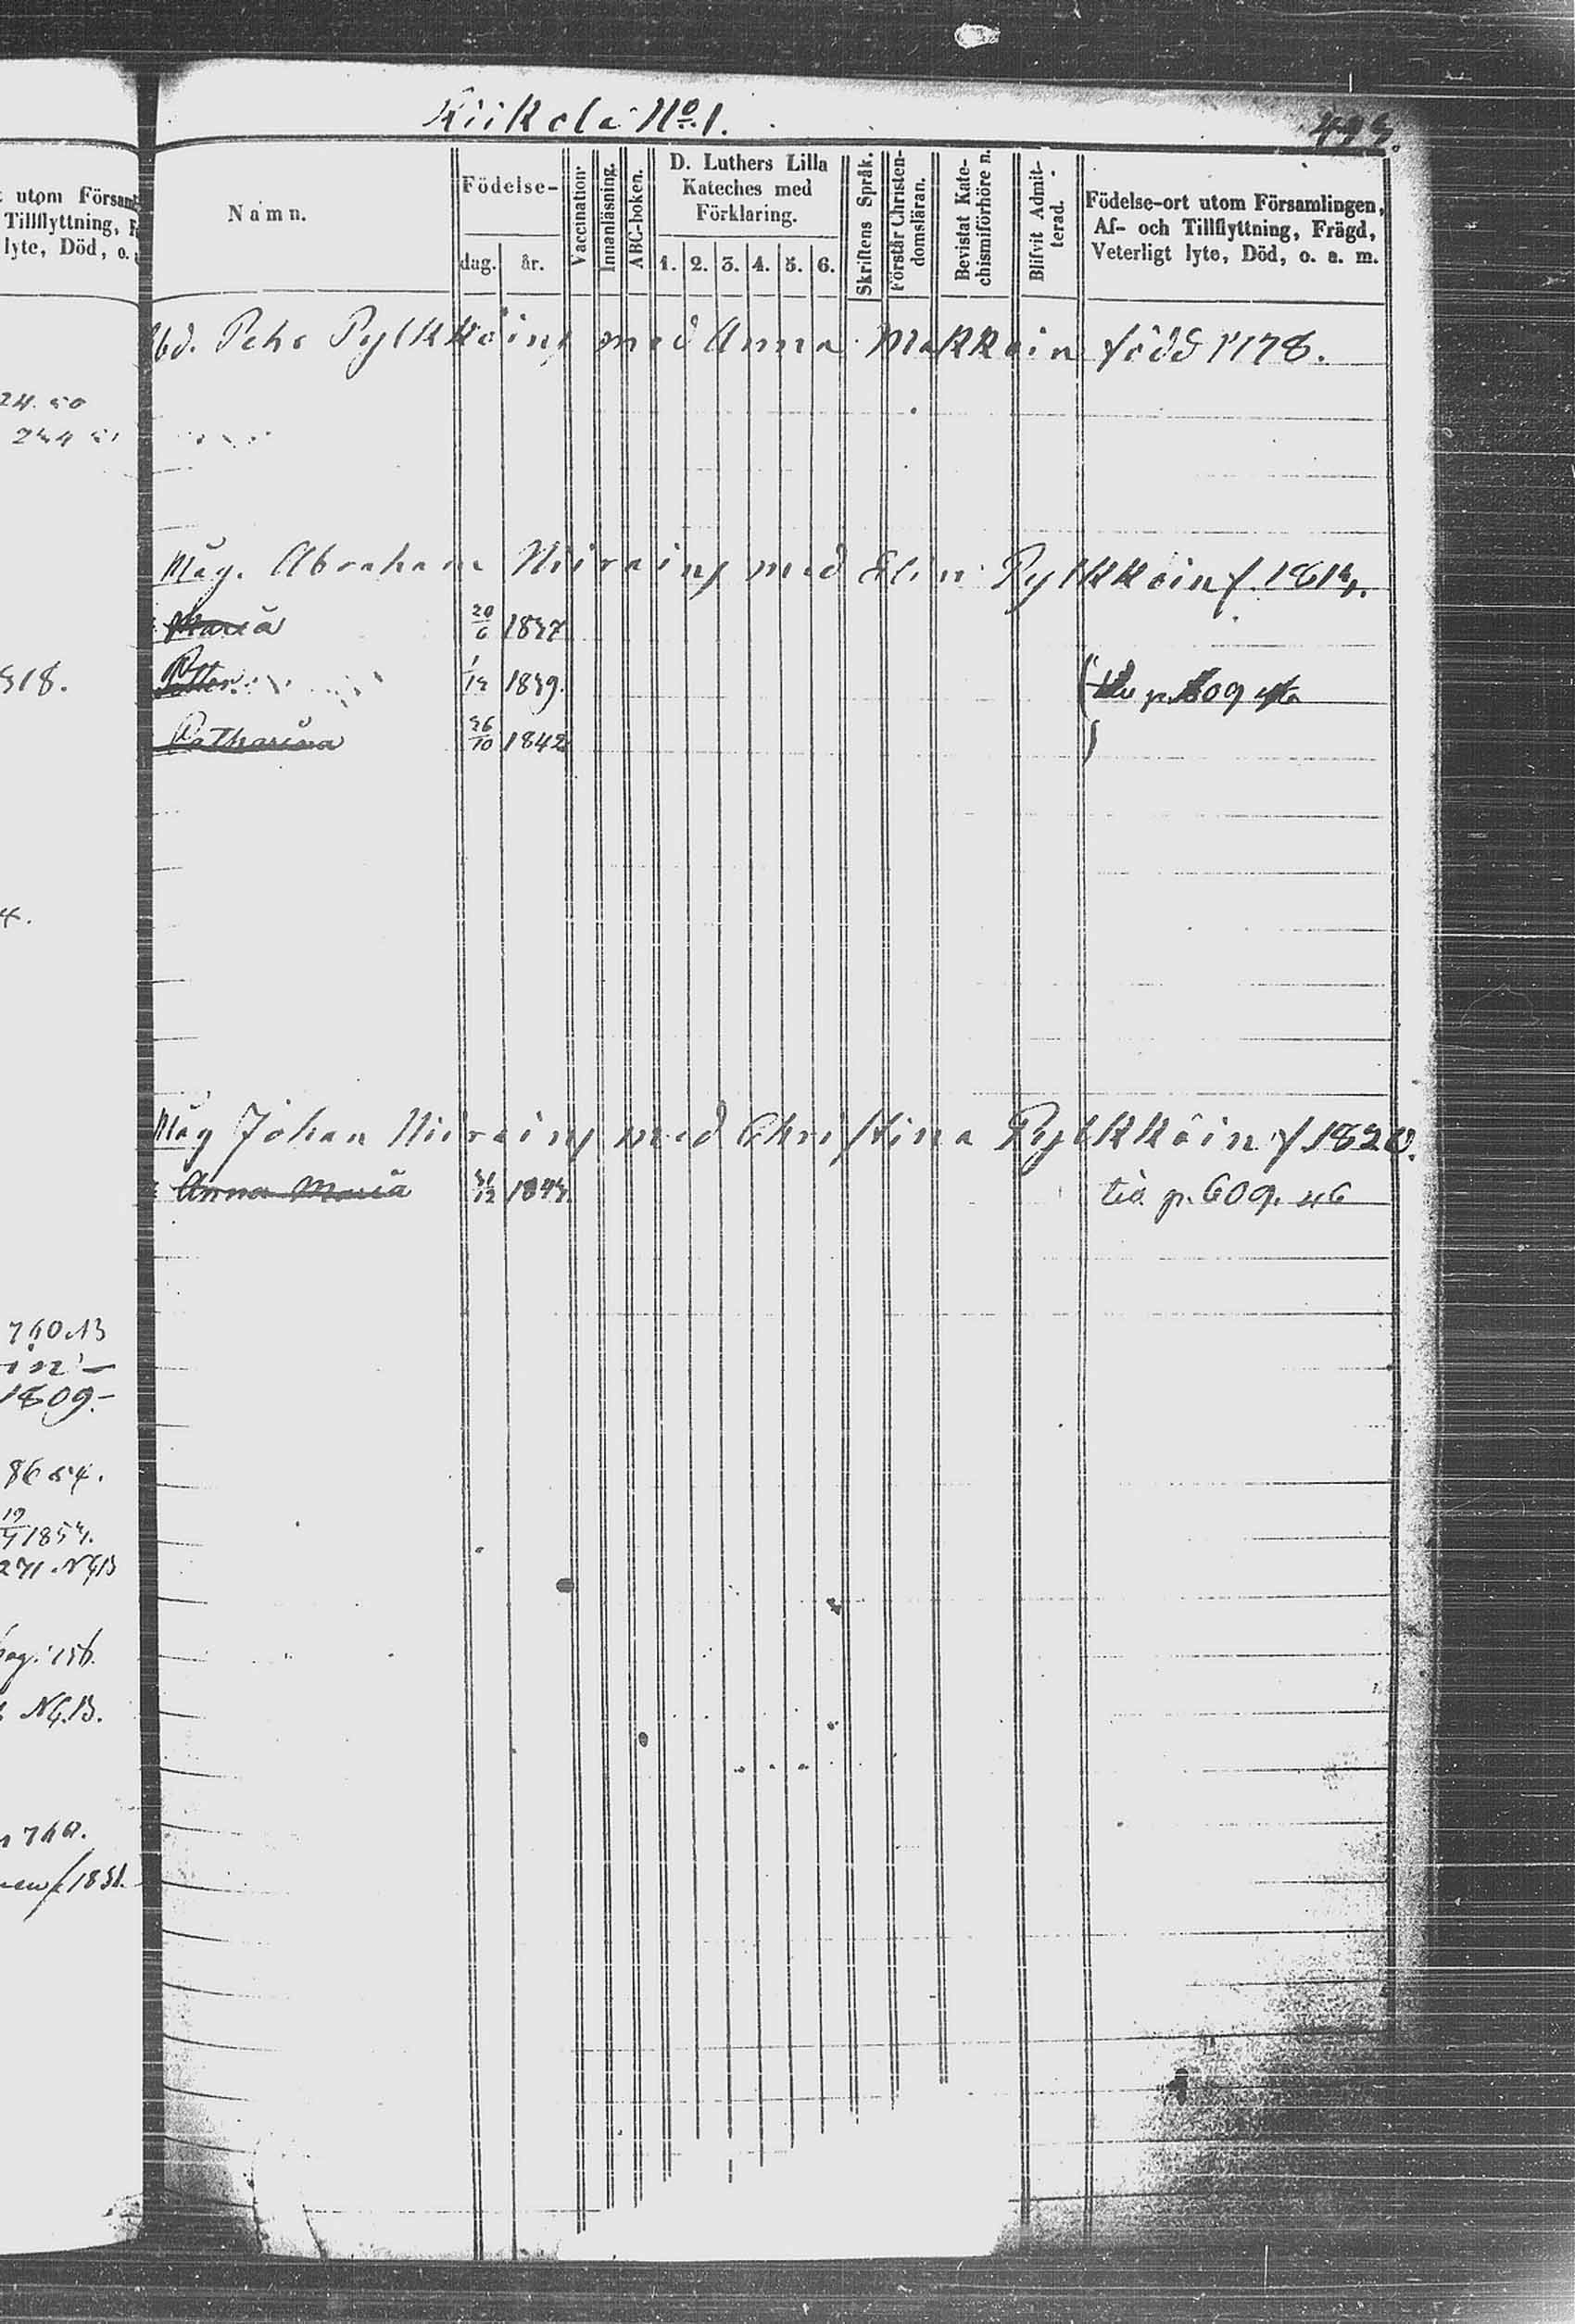 : utom Församl
Tillflyttning, F
lyte, Död, o.
24. 50
318.
4.
740 NB
1809.-
86 54.
19
1854.
pag. 156.
760.
Kiikola No. 1.
493.
Namn.
Födelse-
dag. år.
Vaccination.
Innanläsning.
ABC-boken.
D. Luthers Lilla
Kateches med
Förklaring.
1. 2. 3. 4. 5. 6.
Skriftens Språk.
Förstår Christen-
domsläran.
Bevistat Kate-
chismiförhöre n.
Blifvit Admit-
terad.
Födelse-ort utom Församlingen,
Af- och Tillflyttning, Frägd,
Veterligt lyte, Död, o. s. m.
Pehr Pylkköins med Anna Makkoin född 1778.
Måg. Abraham Niiroins med Elin Pylkköin f. 1813.
Maria 20/6 1837
Petter 1/12 1839. p. 609 46
Catharina 26/10 1842
Måg Johan Niiroins med Christina Pylkköin f 1820.
Anna Maria 31/12 1843 tid. p. 609. 46